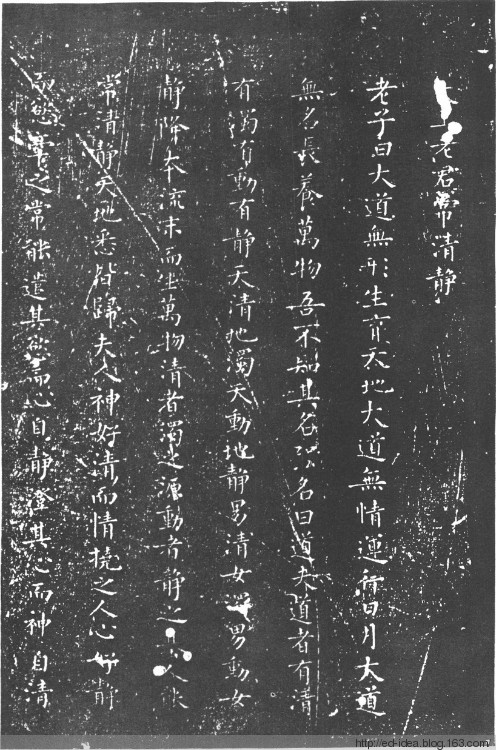 老君常清静
老子曰大道無形生育天地大道無情運行日月大道
無名長養萬物吾不知其名强名曰道夫道者有清
有濁有動有静天清地濁天動地静男清女濁男動女
静降本流末而生萬物清者濁之源動者静之人能
常清静天地悉皆歸夫人神好清而情撓之人心好静
而慾牽之常能遣其欲而心自静澄其心而神自清
http://ed-idea.blog.163.com/